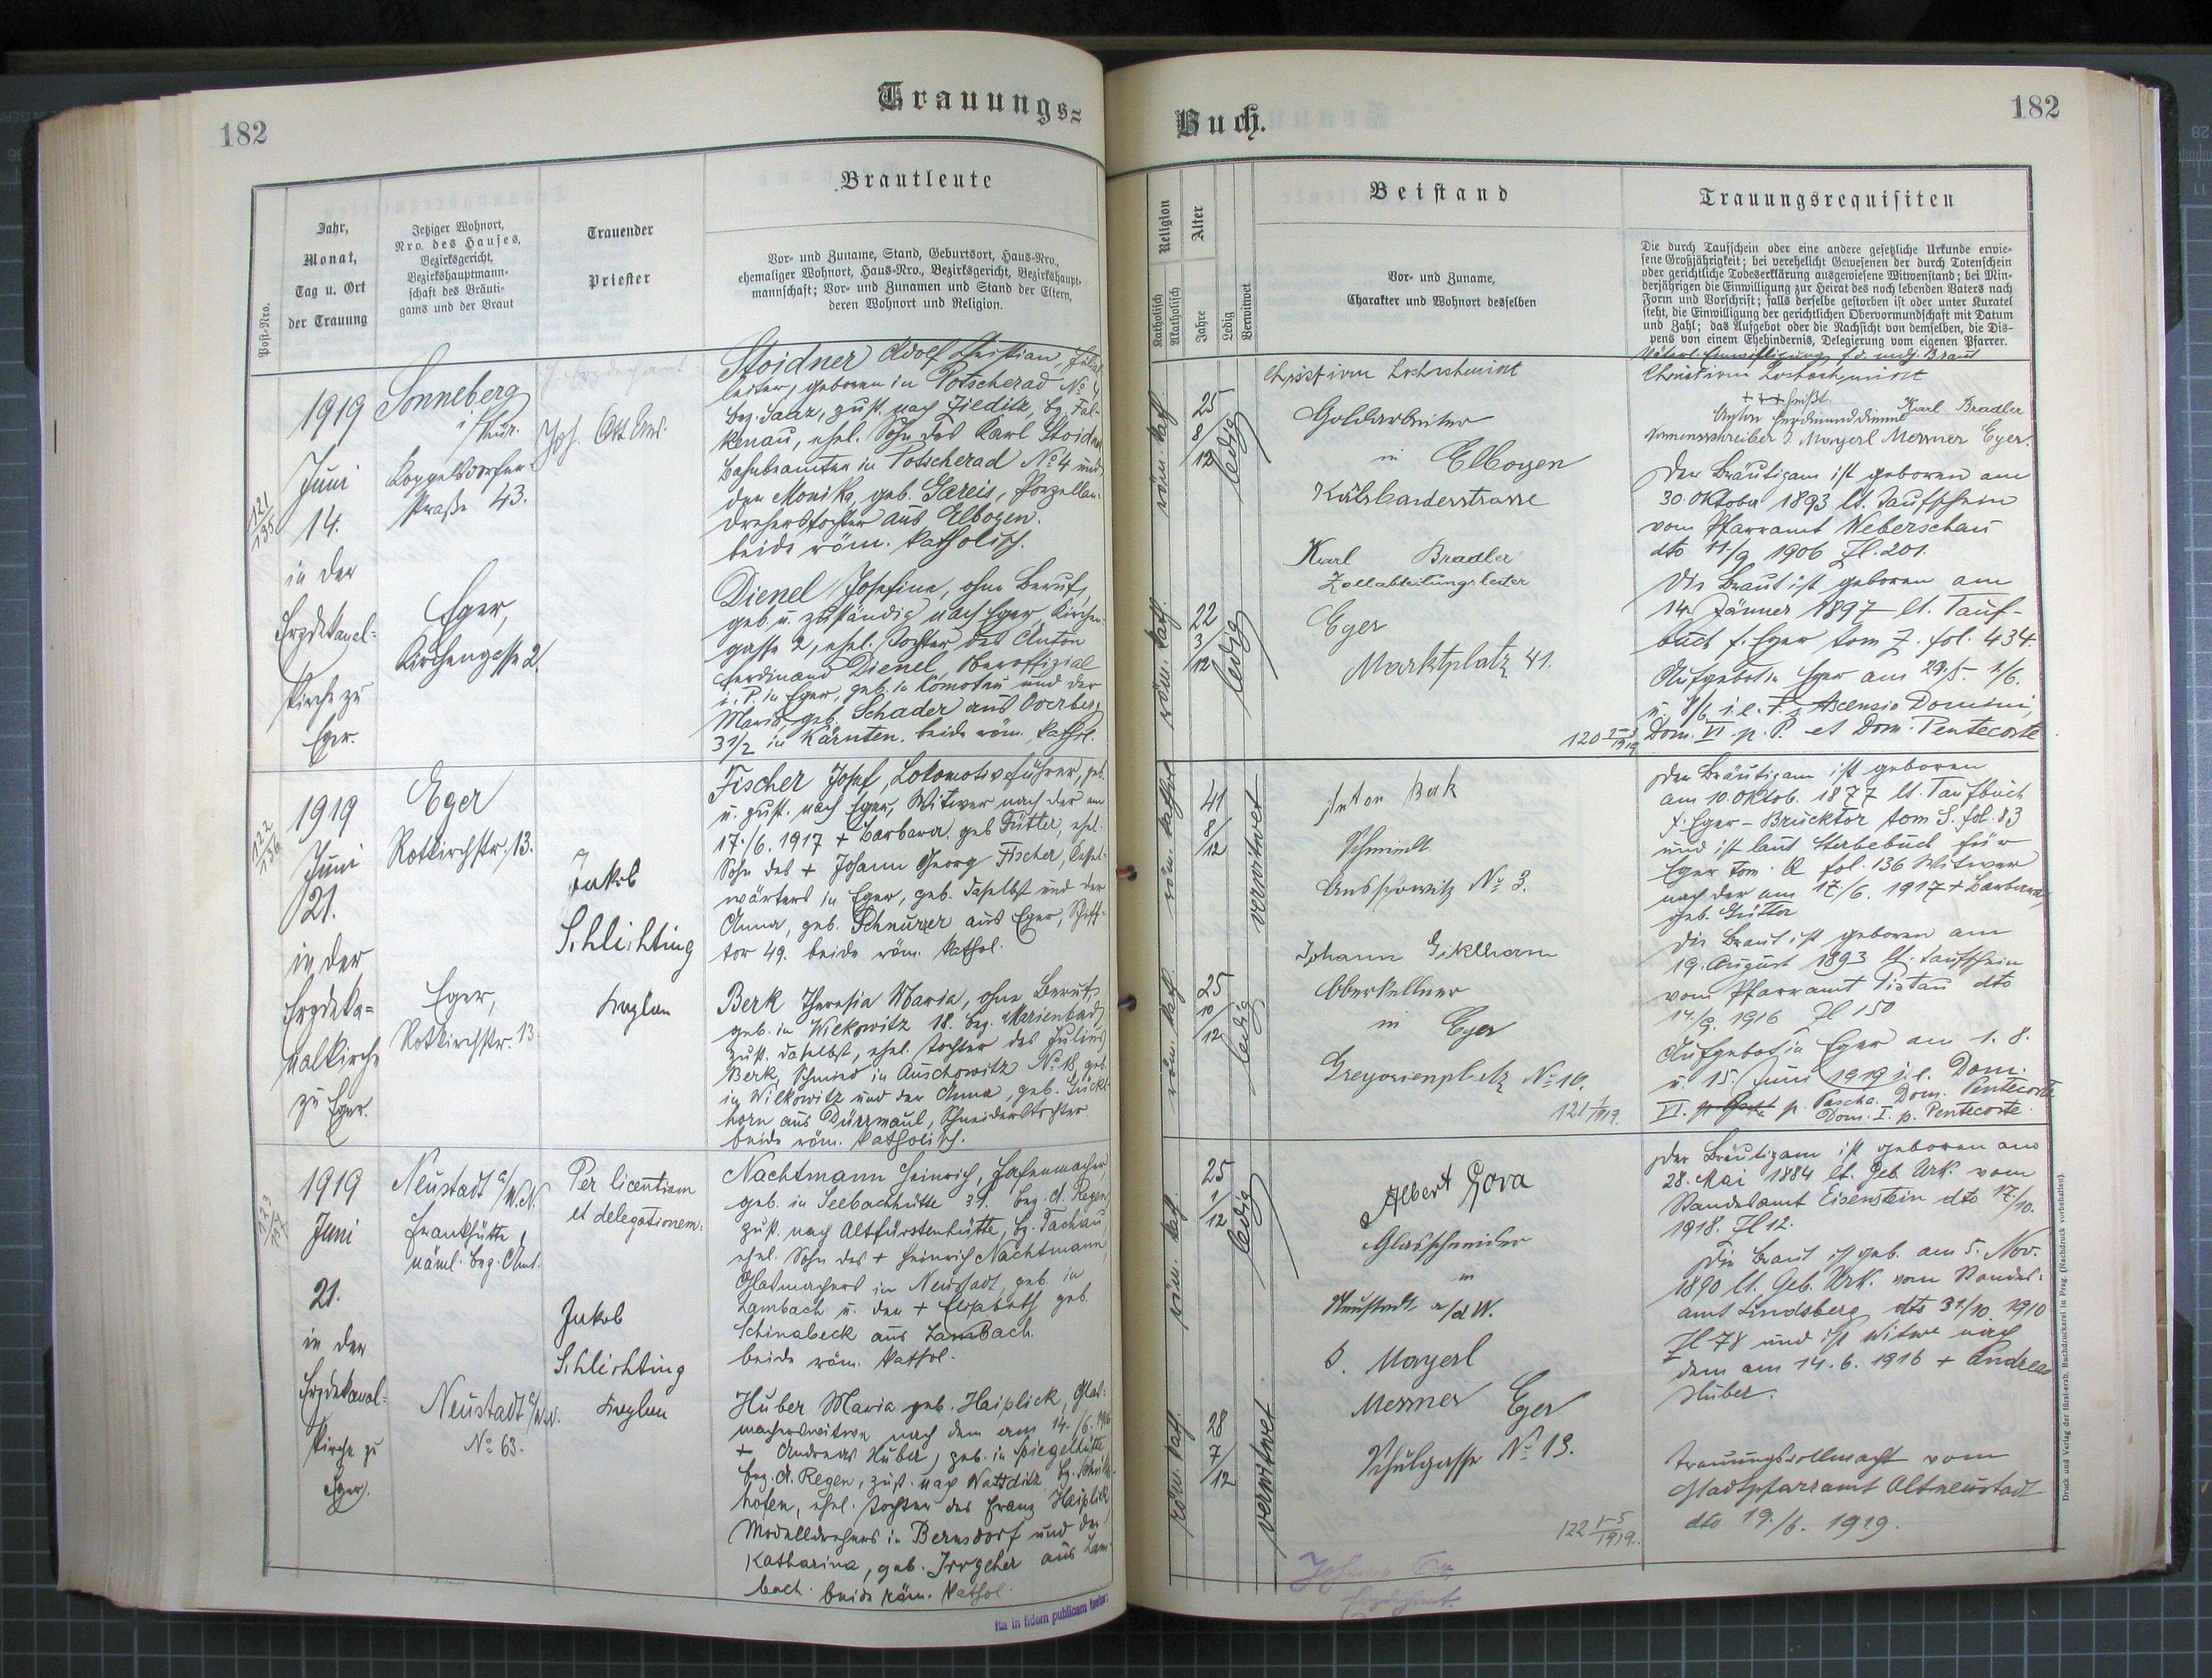 182
Trauungs=
Post-Nro.
Jahr,
Monat,
Tag u. Ort
der Trauung
Jetziger Wohnort,
Nro. des Hauses,
Bezirksgericht,
Bezirkshauptmann-
schaft des Bräuti-
gams und der Braut
Trauender
Priester
Brautleute
Vor- und Zuname, Stand, Geburtsort, Haus-Nro.,
ehemaliger Wohnort, Haus-Nro., Bezirksgericht, Bezirkshaupt-
mannschaft; Vor- und Zunamen und Stand der Eltern,
deren Wohnort und Religion.
121
1919
Juni
14.
in der
Erzdekanal-
kirche zu
Eger.
Sonneberg
i/Thür.
Koppelsdorfer-
straße 43.
Eger,
Kirchengasse 2.
Stoidner Adolf Christian, Filial-
leiter, geboren in Potscherad No 4
bez. Saaz, zust. nach Zieditz, bz. Fal-
kenau, ehel. Sohn des Karl Stoidner
Bahnbeamten in Potscherad No 4 und
der Monika, geb. Gareis, Porzellan-
drehertochter aus Elbogen.
beide röm. katholisch.
Dienel Josefine, ohne Beruf,
geb. u. zuständig nach Eger, Kirchen-
gasse 2, ehel. Tochter des Anton
Ferdinand Dienel, Oberoffizial
i. P. in Eger, geb. in Komotau und der
Maria, geb. Schader aus
in Kärnten. beide röm. kathol.
122
1919
Juni
21.
in der
Erzdeka-
nalkirche
zu Eger.
Eger
Rotkirchstr. 13.
Eger,
Rotkirchstr. 13
Jakob
Schlichting
Kaplan
Fischer Josef, Lokomotivführer, geb.
u. zust. nach Eger, Witwer nach der am
17./6. 1917 + Barbara geb. Fütter, ehel.
Sohn des + Johann Georg Fischer,
wärters in Eger, geb. daselbst und der
Anna, geb. Schnurrer aus Eger, Schiff-
tor 49. beide röm. kathol.
Berk Theresia Maria, ohne Beruf,
geb. in Wilkowitz 18. bez. Marienbad,
zust. daselbst, ehel. Tochter des Julius
Berk, Schmied in Auschowitz No 18, geb.
in Wilkowitz und der Anna, geb. Gückl-
horn aus Dürrmaul, Schneiderstochter.
beide röm. katholisch.
123
1919
Juni
21.
in der
Erzdekanal-
kirche zu
Eger.
Neustadt a/W.N.
Frankhütte
Neustadt a/W.N.
No 63.
Per licentiam
et delegationem:
Jakob
Schlichting
Kaplan
Nachtmann Heinrich,
geb. in Seebachhütte 31. bez. A. Regen,
zust. nach Altfürstenhütte, bz. Tachau,
ehel. Sohn des + Heinrich Nachtmann,
Glasmachers in Neustadt, geb. in
Lambach u. der + Elisabeth geb.
Schinabeck aus Lambach.
beide röm. kathol.
Huber Maria geb. Haiplick, Glas-
macherswitwe nach dem am 14./6. 1916
+ Andreas Huber, geb. in Spiegelhütte
bez. A. Regen, zust. nach
hofen, ehel. Tochter des Franz Haiplick
Modelldrehers in Bernsdorf und der
Katharina, geb. Irrgeher aus Lam-
bach. beide röm. kathol.
Ita in fidem publicam testor:
Buch.
182
Religion
Katholisch
Akatholisch
Alter
Jahre
Ledig
Verwitwet
Beistand
Vor- und Zuname,
Charakter und Wohnort desselben
Trauungsrequisiten
Die durch Taufschein oder eine andere gesetzliche Urkunde erwie-
sene Großjährigkeit; bei verehelicht Gewesenen der durch Totenschein
oder gerichtliche Todeserklärung ausgewiesene Witwenstand; bei Min-
derjährigen die Einwilligung zur Heirat des noch lebenden Vaters nach
Form und Vorschrift; falls derselbe gestorben ist oder unter Kuratel
steht, die Einwilligung der gerichtlichen Obervormundschaft mit Datum
und Zahl; das Aufgebot oder die Nachsicht von demselben, die Dis-
pens von einem Ehehindernis, Delegierung vom eigenen Pfarrer.
röm. kath.
25
8/12
ledig
röm. kath.
22
3/12
ledig
Goldarbeiter
in Elbogen
Karl Bradler
Zollabteilungsleiter
Eger
Marktplatz 41.
Väterl. Einwilligung f. d. mdj. Braut
Karl Bradler
Namensschreiber J. Mayerl Messner Eger.
Der Bräutigam ist geboren am
30. Oktober 1893 lt. Taufschein
vom Pfarramt Weberschau
dto 11./9 1906 Zl. 201.
Die Braut ist geboren am
14. Jänner 1897 lt. Tauf-
buch f. Eger tom Z. fol. 434.
Aufgebot in Eger am 29/5. 1/6.
u. 8/6 i. e. F. Ascensio Domini,
Dom. VI. p. P. et Dom. Pentecoste
röm. kathol.
41
8/12
verwitwet
röm. kath.
25
10/12
ledig
Anton Berk
Schmied
Auschowitz No 3.
Johann Giklhorn
Oberkellner
in Eger
Gregorienplatz No 10.
Der Bräutigam ist geboren
am 10. Oktob. 1877 lt. Taufbuch
f. Eger-Brucktor tom S. fol. 83
und ist laut Sterbebuch für
Eger tom. A fol. 136 Witwer
nach der am 17./6. 1917 + Barbara
geb. Fütter
Die Braut ist geboren am
19. August 1893 lt. Taufschein
vom Pfarramt Pistau dto
1916 Zl 150
Aufgebot in Eger am 1. 8.
u. 15. Juni 1919 i. e. Dom.
VI. p. Pascha. Dom. Pentecoste
Dom. I. p. Pentecoste.
röm. kath.
25
1/12
ledig
röm. kath.
28
7/12
verwitwet
Albert Gora
Glasschneider
in
Neustadt a/d W.
J. Mayerl
Messner Eger
Schulgasse No 13.
Der Bräutigam ist geboren am
28. Mai 1884 lt. Geb. Urk. vom
Standesamt Eisenstein dto 17./10.
1918. Zl 12.
Die Braut ist geb. am 5. Nov.
1890 lt. Geb. Urk. vom Standes-
amt Lindsberg dto 31./10. 1910
Zl 78 und ist Witwe nach
dem am 14. 6. 1916 + Andreas
Huber.
Trauungsvollmacht vom
Stadtpfarramt Altneustadt
dto 19./6. 1919.
Druck und Verlag der fürst-erzb. Buchdruckerei in Prag. (Nachdruck vorbehalten)